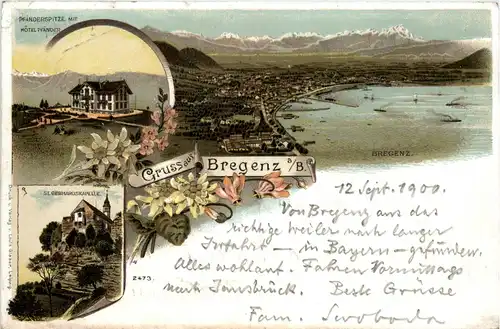 PFÄNDERSPITZE MIT
HÔTEL PFÄNDER
BREGENZ.
Gruss aus Bregenz a/B.
ST. GEBHARDSKAPELLE.
2473.
12 Sept. 1900.
Von Bregenz aus das
richtige Weiler nach langer
Irrfahrt – in Bayern – gefunden.
Alles wohlauf. Fahren Vormittags
nach Innsbruck. Beste Grüsse
Fam. Swoboda